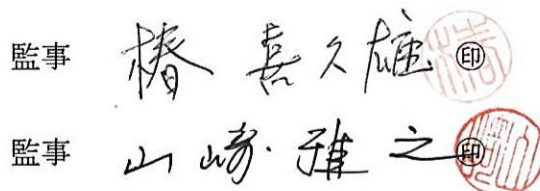 監事 椿 喜久雄 ㊞
監事 山崎 雅之 ㊞